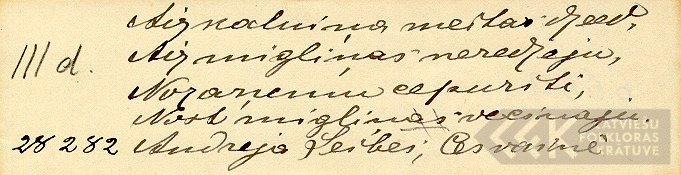 Aiz kalniņa meitas dzied,
III d. Aiz migliņas neredzeju,
Noņemu cepuriti,
Nost migliņas vecinaju.
28282 Andrejs Leibes, Cesvainē
LATVIEŠU
LFK FOLKLORAS
KRĀTUVE